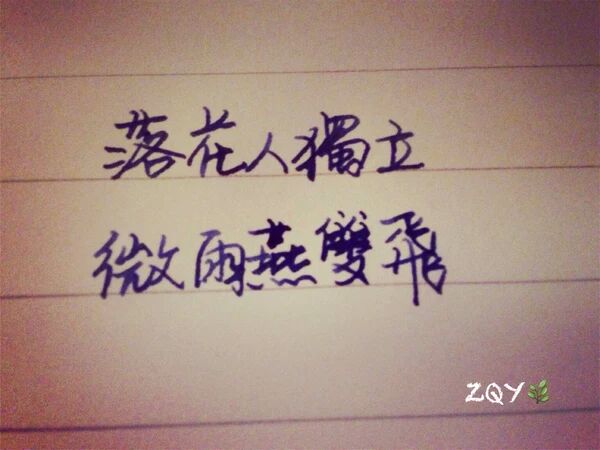 落花人獨立
微雨燕雙飛
ZQY🌿